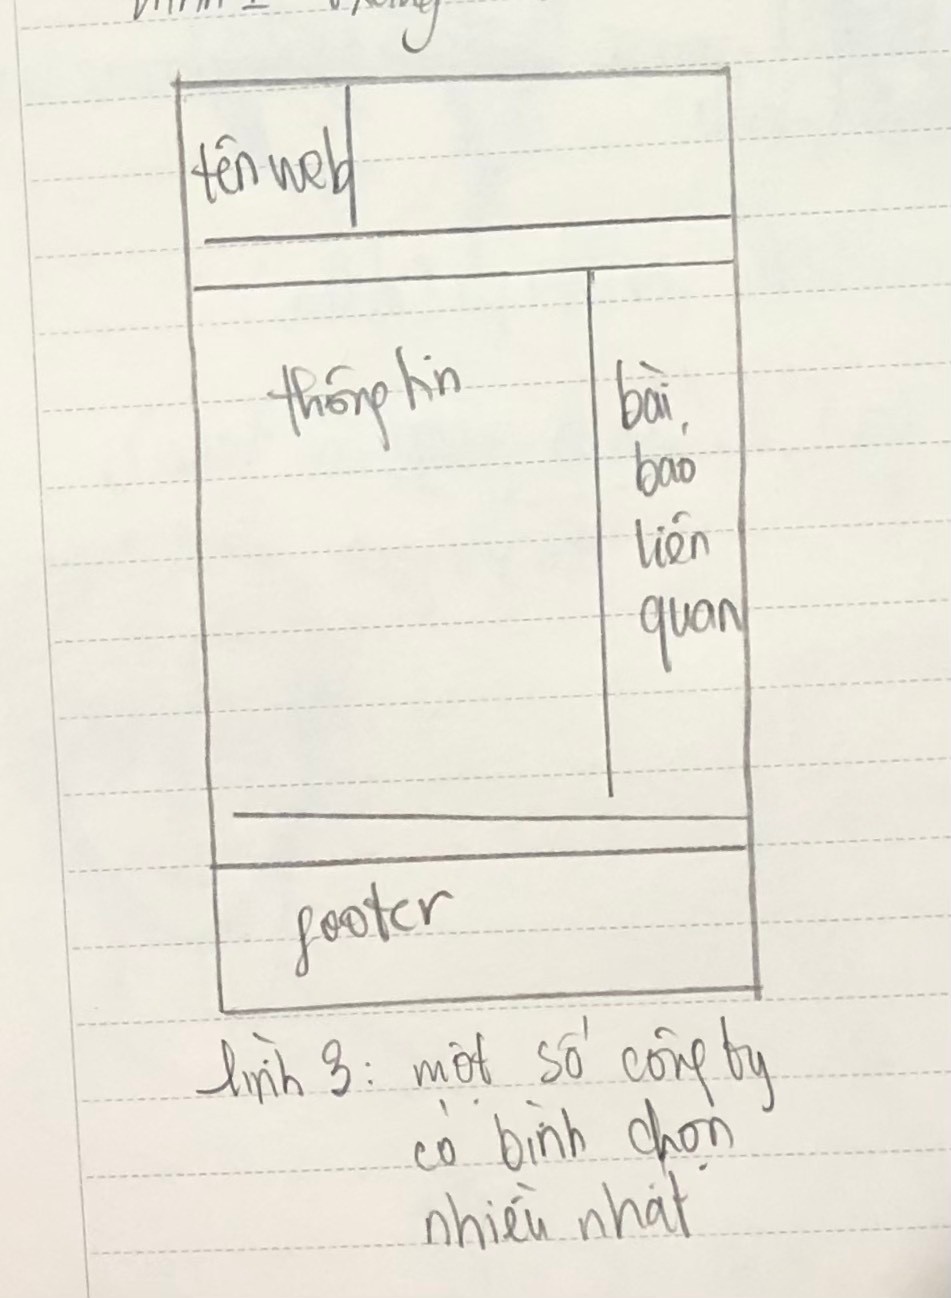 tên web
thông tin
bài
báo
liên
quan
footer
hình 3: một số công ty
có bình chọn
nhiều nhất